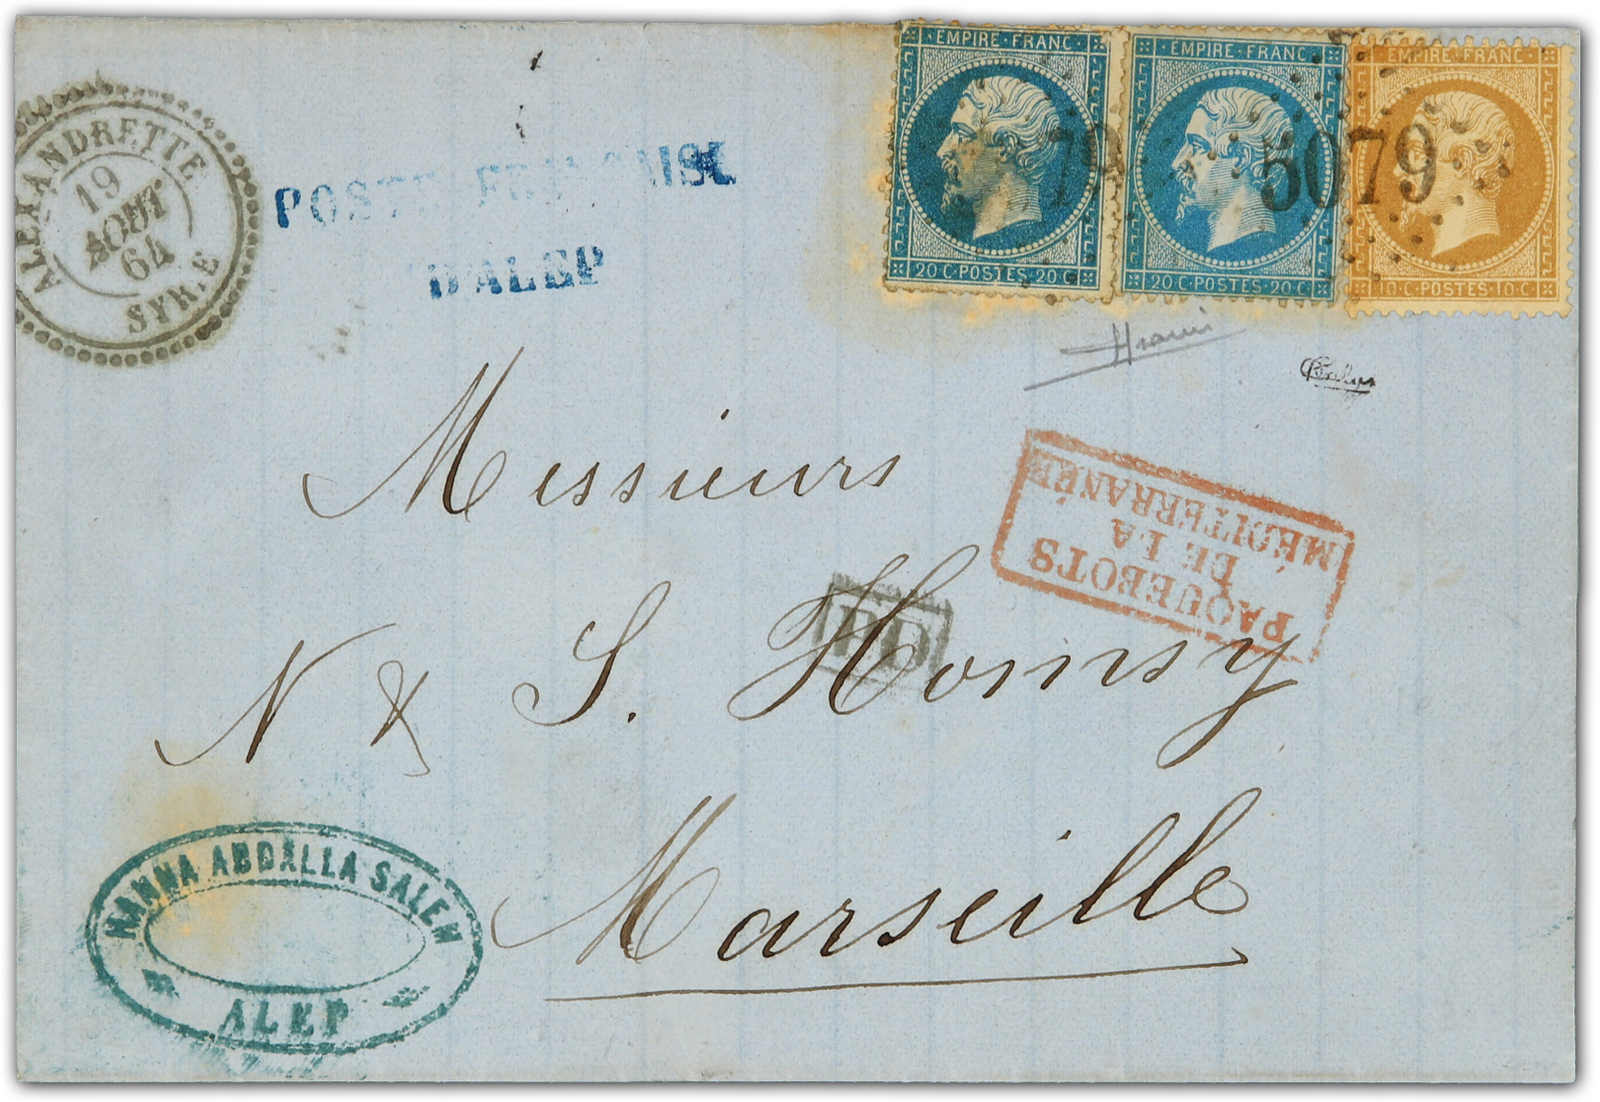 ALEXANDRETTE
19
AOUT
64
SYRIE
POSTE FRANÇAISE
D'ALEP
EMPIRE FRANC
20 C POSTES 20 C
EMPIRE FRANC
20 C POSTES 20 C
EMPIRE FRANC
10 C POSTES 10 C
79
5079
PAQUEBOTS
DE LA
MÉDITERRANÉE
PD
Messieurs
N & S. Homsy
Marseille
HANNA ABDALLA SALEM
ALEP